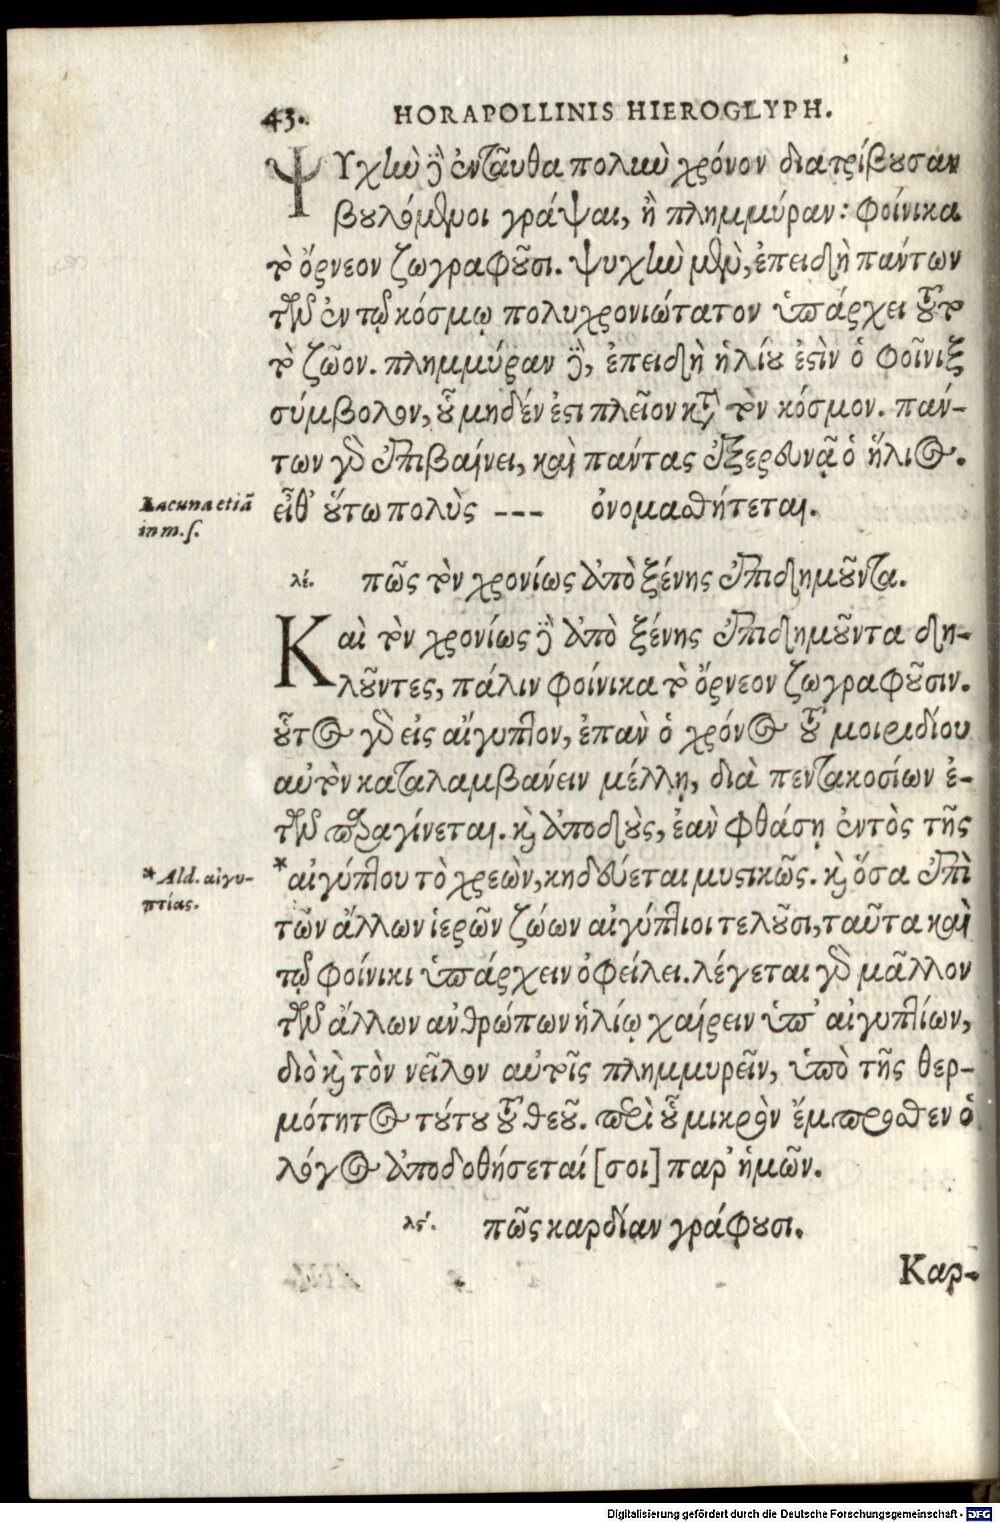 43. HORAPOLLINIS HIEROGLYPH.
ΨΥχὴν δὲ ἐνταῦθα πολιὺ χρόνον διατρίβουσαν
βουλόμενοι γράψαι, ἢ πλημμύραν: φοίνικα
τὸ ὄρνεον ζωγραφοῦσι. ψυχὴν μὲν, ἐπειδὴ πάντων
τῶν ἐν τῷ κόσμῳ πολυχρονιώτατον ὑπάρχει τοῦτο
τὸ ζῶον. πλημμύραν δὲ, ἐπειδὴ ἡλίου ἐστὶν ὁ φοῖνιξ
σύμβολον, οὗ μηδέν ἐστι πλεῖον κατὰ τὸν κόσμον. πάν-
των γὰρ ἐπιβαίνει, καὶ πάντας ἐξερευνᾷ ὁ ἥλιος.
εἶθ' οὕτω πολὺς --- ὀνομασθήτεται.
Lacuna etiã
in m.s.
λέ. πῶς τὸν χρονίως ἀπὸ ξένης ἐπιδημοῦντα.
Καὶ τὸν χρονίως δὲ ἀπὸ ξένης ἐπιδημοῦντα δη-
λοῦντες, πάλιν φοίνικα τὸ ὄρνεον ζωγραφοῦσιν.
οὗτος γὰρ εἰς αἴγυπτον, ἐπὰν ὁ χρόνος τοῦ μοιριδίου
αὐτὸν καταλαμβάνειν μέλλῃ, διὰ πεντακοσίων ἐ-
τῶν παραγίνεται. καὶ ἀποδοὺς, ἐὰν φθάσῃ ἐντὸς τῆς
*αἰγύπτου τὸ χρεὼν, κηδεύεται μυστικῶς. καὶ ὅσα ἐπὶ
*Ald. αἰγυ-
πτίας.
τῶν ἄλλων ἱερῶν ζώων αἰγύπτιοι τελοῦσι, ταῦτα καὶ
τῷ φοίνικι ὑπάρχειν ὀφείλει. λέγεται γὰρ μᾶλλον
τῶν ἄλλων ανθρώπων ἡλίῳ χαίρειν ὑπ' αἰγυπτίων,
διὸ καὶ τὸν νεῖλον αὐτοῖς πλημμυρεῖν, ὑπὸ τῆς θερ-
μότητος τούτου τοῦ θεοῦ. περὶ οὗ μικρὸν ἔμπροσθεν ὁ
λόγος ἀποδοθήσεταί [σοι] παρ' ἡμῶν.
λϛ́. πῶς καρδίαν γράφουσι.
Καρ-
Digitalisierung gefördert durch die Deutsche Forschungsgemeinschaft - DFG